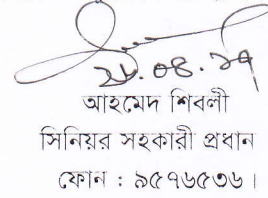 ২৮.০৪.১৭
আহমেদ শিবলী
সিনিয়র সহকারী প্রধান
ফোন : ৯৫৭৬৫৩৬।